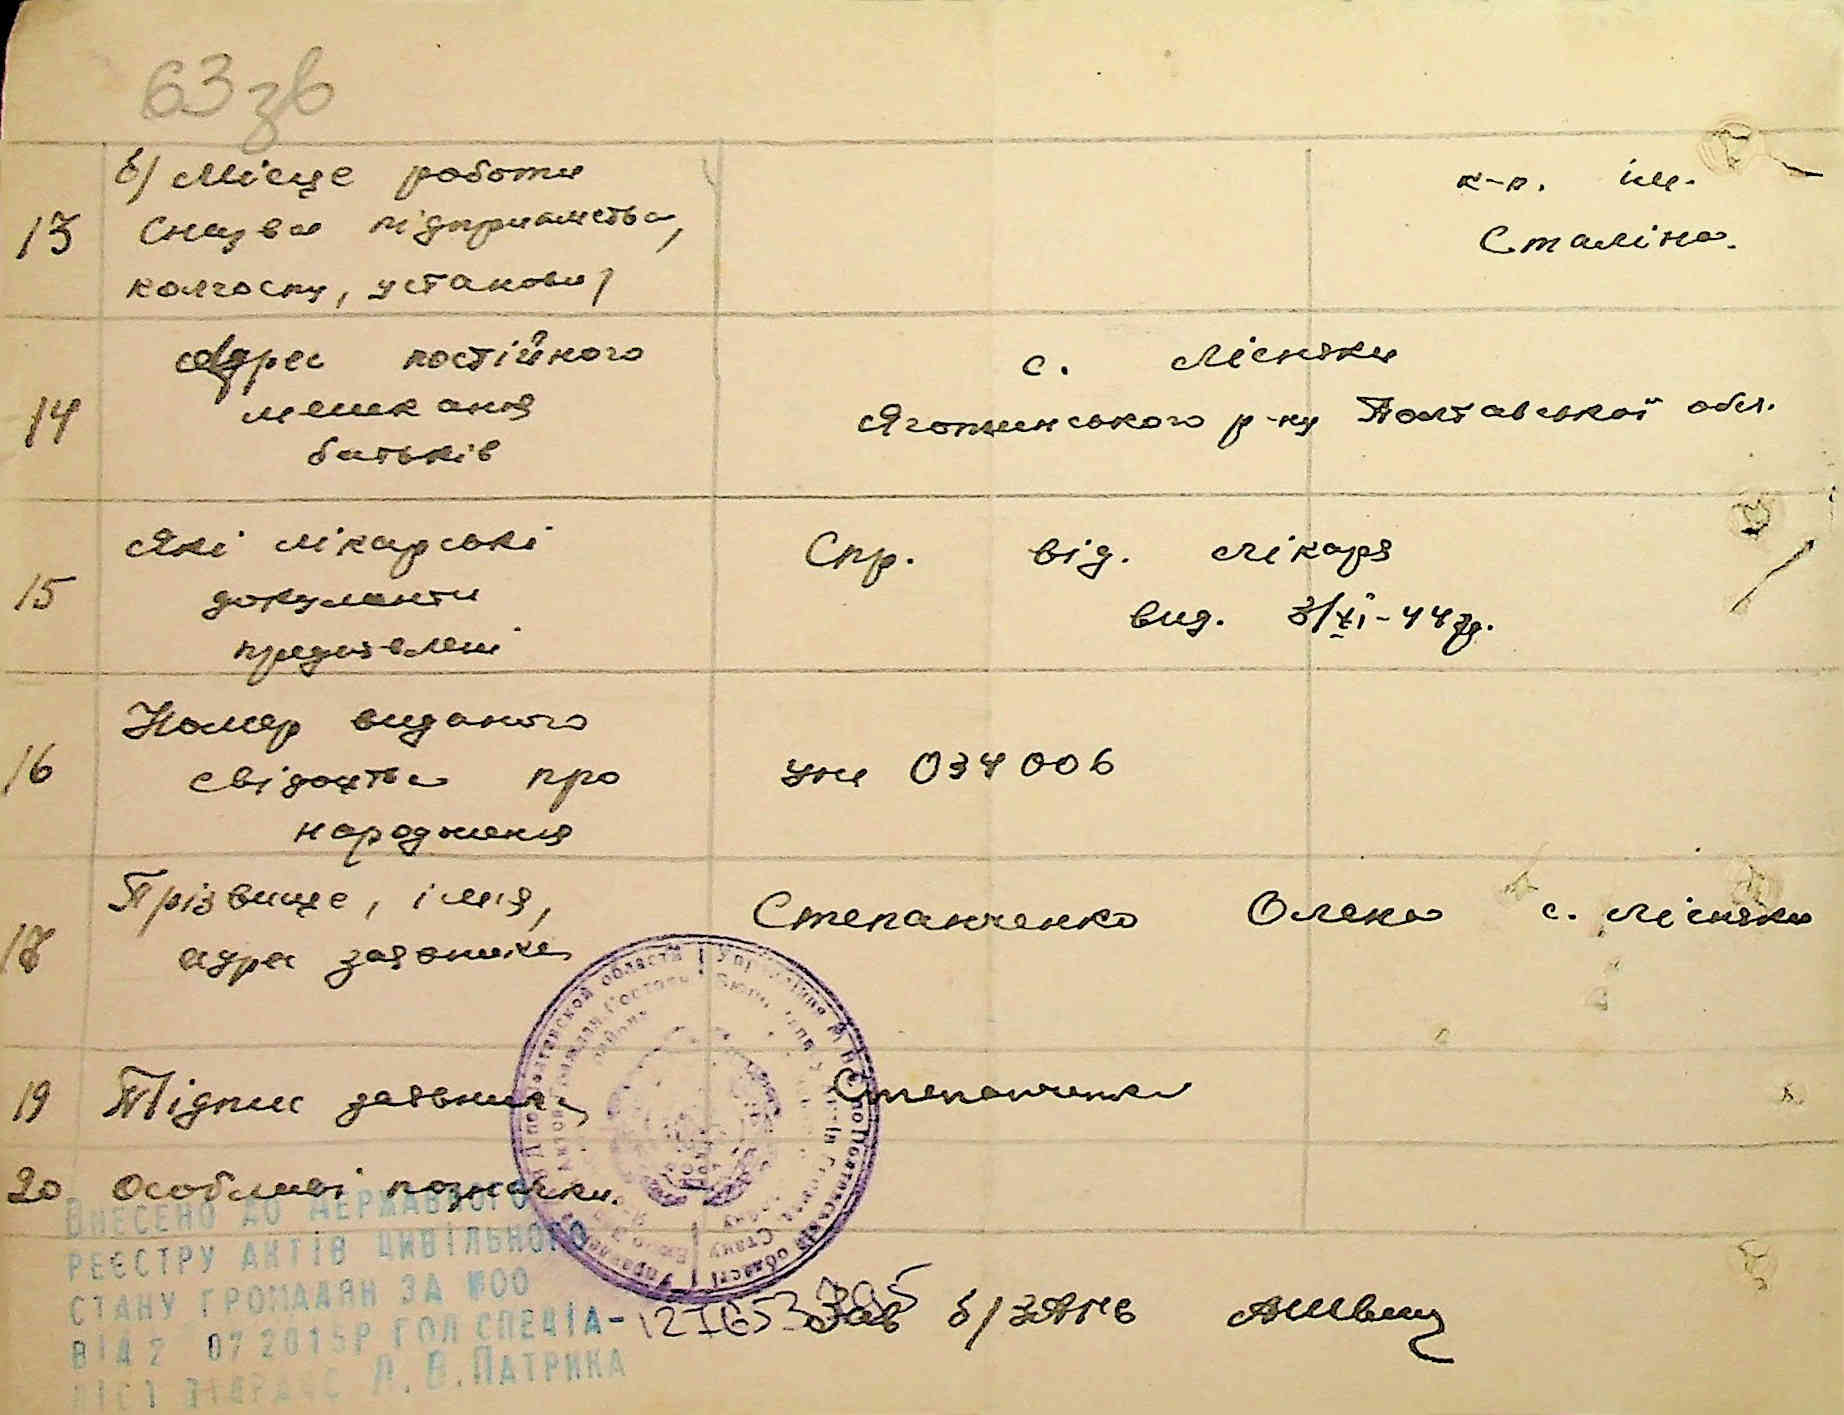 63 зв
13 б/ Місце роботи
/назва підприємства,
колгоспу, установи/
к-п. ім.
Сталіна.
14 Адрес постійного
мешкання
батьків
с. Лісняки
Яготинського р-ну Полтавської обл.
15 Які лікарські
документи
предʼявлені
Спр. від. лікаря
вид. 3/XI-44 р.
16 Номер виданого
свідоцтва про
народження
УЖ 034006
18 Прізвище, імя,
адрес заявника
Степанченко Олена с. Лісняки
19 Підпис заявника
Степанченко
20 Особливі позначки.
ВНЕСЕНО ДО ДЕРЖАВНОГО
РЕЄСТРУ АКТІВ ЦИВІЛЬНОГО
СТАНУ ГРОМАДЯН ЗА №00
ВІД 2 07 2015Р ГОЛ СПЕЦІА-
ЛІСТ Л. В. ПАТРИКА
Зав б/ЗАГС АШвец